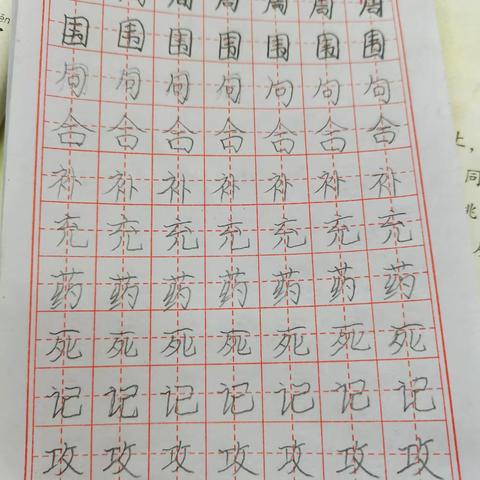 周 周 周 周 周 周
围 围 围 围 围 围 围
句 句 句 句 句 句 句
舍 舍 舍 舍 舍 舍 舍
补 补 补 补 补 补 补
充 充 充 充 充 充 充
药 药 药 药 药 药 药
死 死 死 死 死 死 死
记 记 记 记 记 记 记
攻 攻 攻 攻 攻 攻 攻